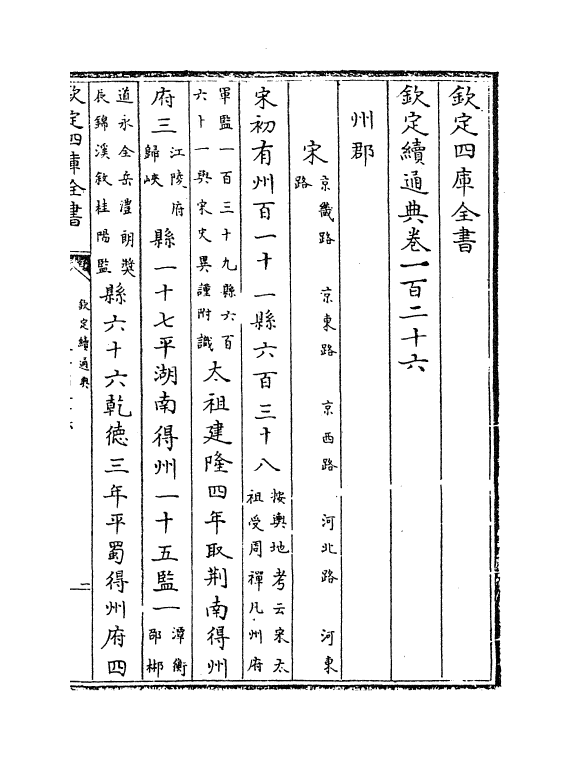 欽定四庫全書
欽定續通典卷一百二十六
州郡
宋 京畿路 京東路 京西路 河北路 河東
路
宋初有州百一十一縣六百三十八 按輿地考云宋太
祖受周禪凡州府
軍監一百三十九縣六百
六十一與宋史異謹附識 太祖建隆四年取荆南得州
府三 江陵府
歸峽 縣一十七平湖南得州一十五監一 潭衡
邵郴
道永全岳澧朗奬
辰錦溪敘桂陽監 縣六十六乾德三年平蜀得州府四
欽定四庫全書
欽定續通典